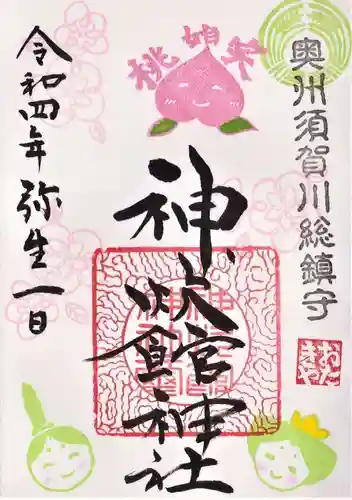 奥州須賀川総鎮守
桃始笑
神炊館神社
令和四年弥生一日